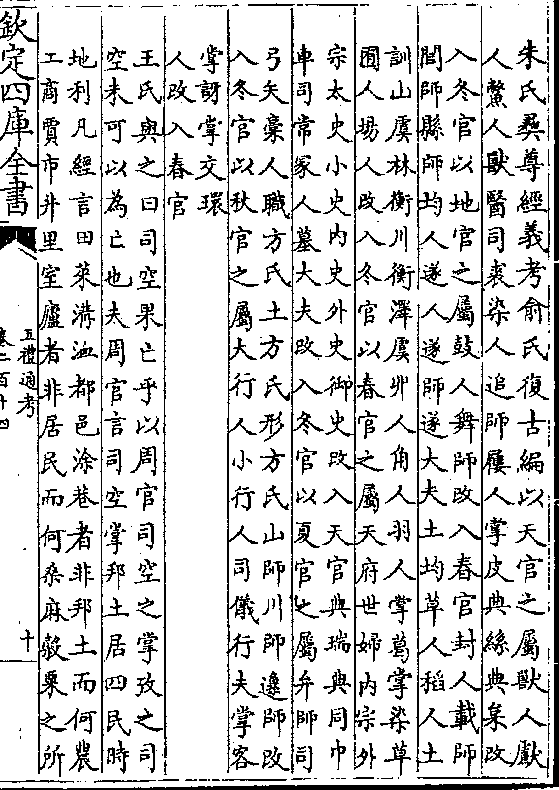 朱氏彝尊經義考俞氏復古編以天官之屬獸人䱷
人鱉人獸醫司裘染人追師屨人掌皮典絲典枲改
入冬官以地官之屬鼓人舞師改入春官封人載師
閭師縣師均人遂人遂師遂大夫土均草人稻人土
訓山虞林衡川衡澤虞丱人角人羽人掌葛掌染草
囿人場人改入冬官以春官之屬天府世婦内宗外
宗太史小史内史外史御史改入天官典瑞典同巾
車司常冢人墓大夫改入冬官以夏官之屬弁師司
弓矢槀人職方氏土方氏形方氏山師川師邍師改
入冬官以秋官之屬大行人小行人司儀行夫掌客
掌訝掌交環
人改入春官
王氏與之曰司空果亡乎以周官司空之掌攷之司
空未可以為亡也夫周官言司空掌邦土居四民時
地利凡經言田萊溝洫都邑涂巷者非邦土而何農
工商賈市井里室廬者非居民而何桑麻榖粟之所
欽定四庫全書
五禮通考
卷二百十四
十